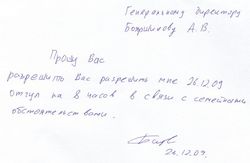 Генеральному директору
Бояршинову А.В.
Прошу Вас
разрешить Вас разрешить мне 26.12.09
отгул на 8 часов в связи с семейными
обстоятельствами.
26.12.09